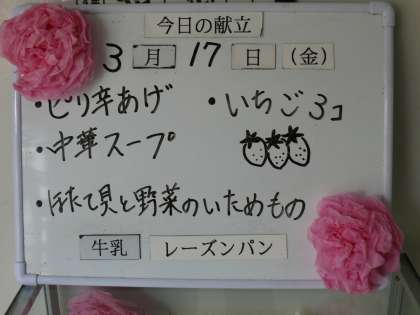 今日の献立
3月17日(金)
・ピリ辛あげ ・いちご3コ
・中華スープ
・ほたて貝と野菜のいためもの
牛乳 レーズンパン